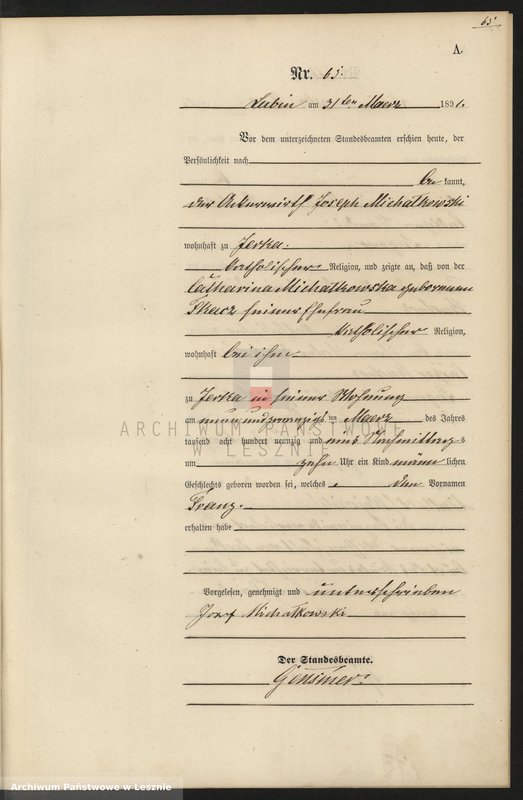 65
A.
Nr. 65.
Lubin am 31ten Maerz 1891.
Vor dem unterzeichneten Standesbeamten erschien heute, der
Persönlichkeit nach
be kannt,
der Ackerwirth Joseph Michałkowski
wohnhaft zu Jerka.
katholischer Religion, und zeigte an, daß von der
Catharina Michałkowska geborenen
Tkacz seiner Ehefrau
katholischer Religion,
wohnhaft bei ihm
zu Jerka in seiner Wohnung
am neun und zwanzigsten ten Maerz des Jahres
tausend acht hundert neunzig und eins Nachmittag s
um zehn Uhr ein Kind männ lichen
Geschlechts geboren worden sei, welches den Vornamen
Franz.
erhalten habe
Vorgelesen, genehmigt und unterschrieben
Josef Michałkowski
Der Standesbeamte.
ARCHIWUM PAŃSTWOWE
W LESZNIE
Archiwum Państwowe w Lesznie